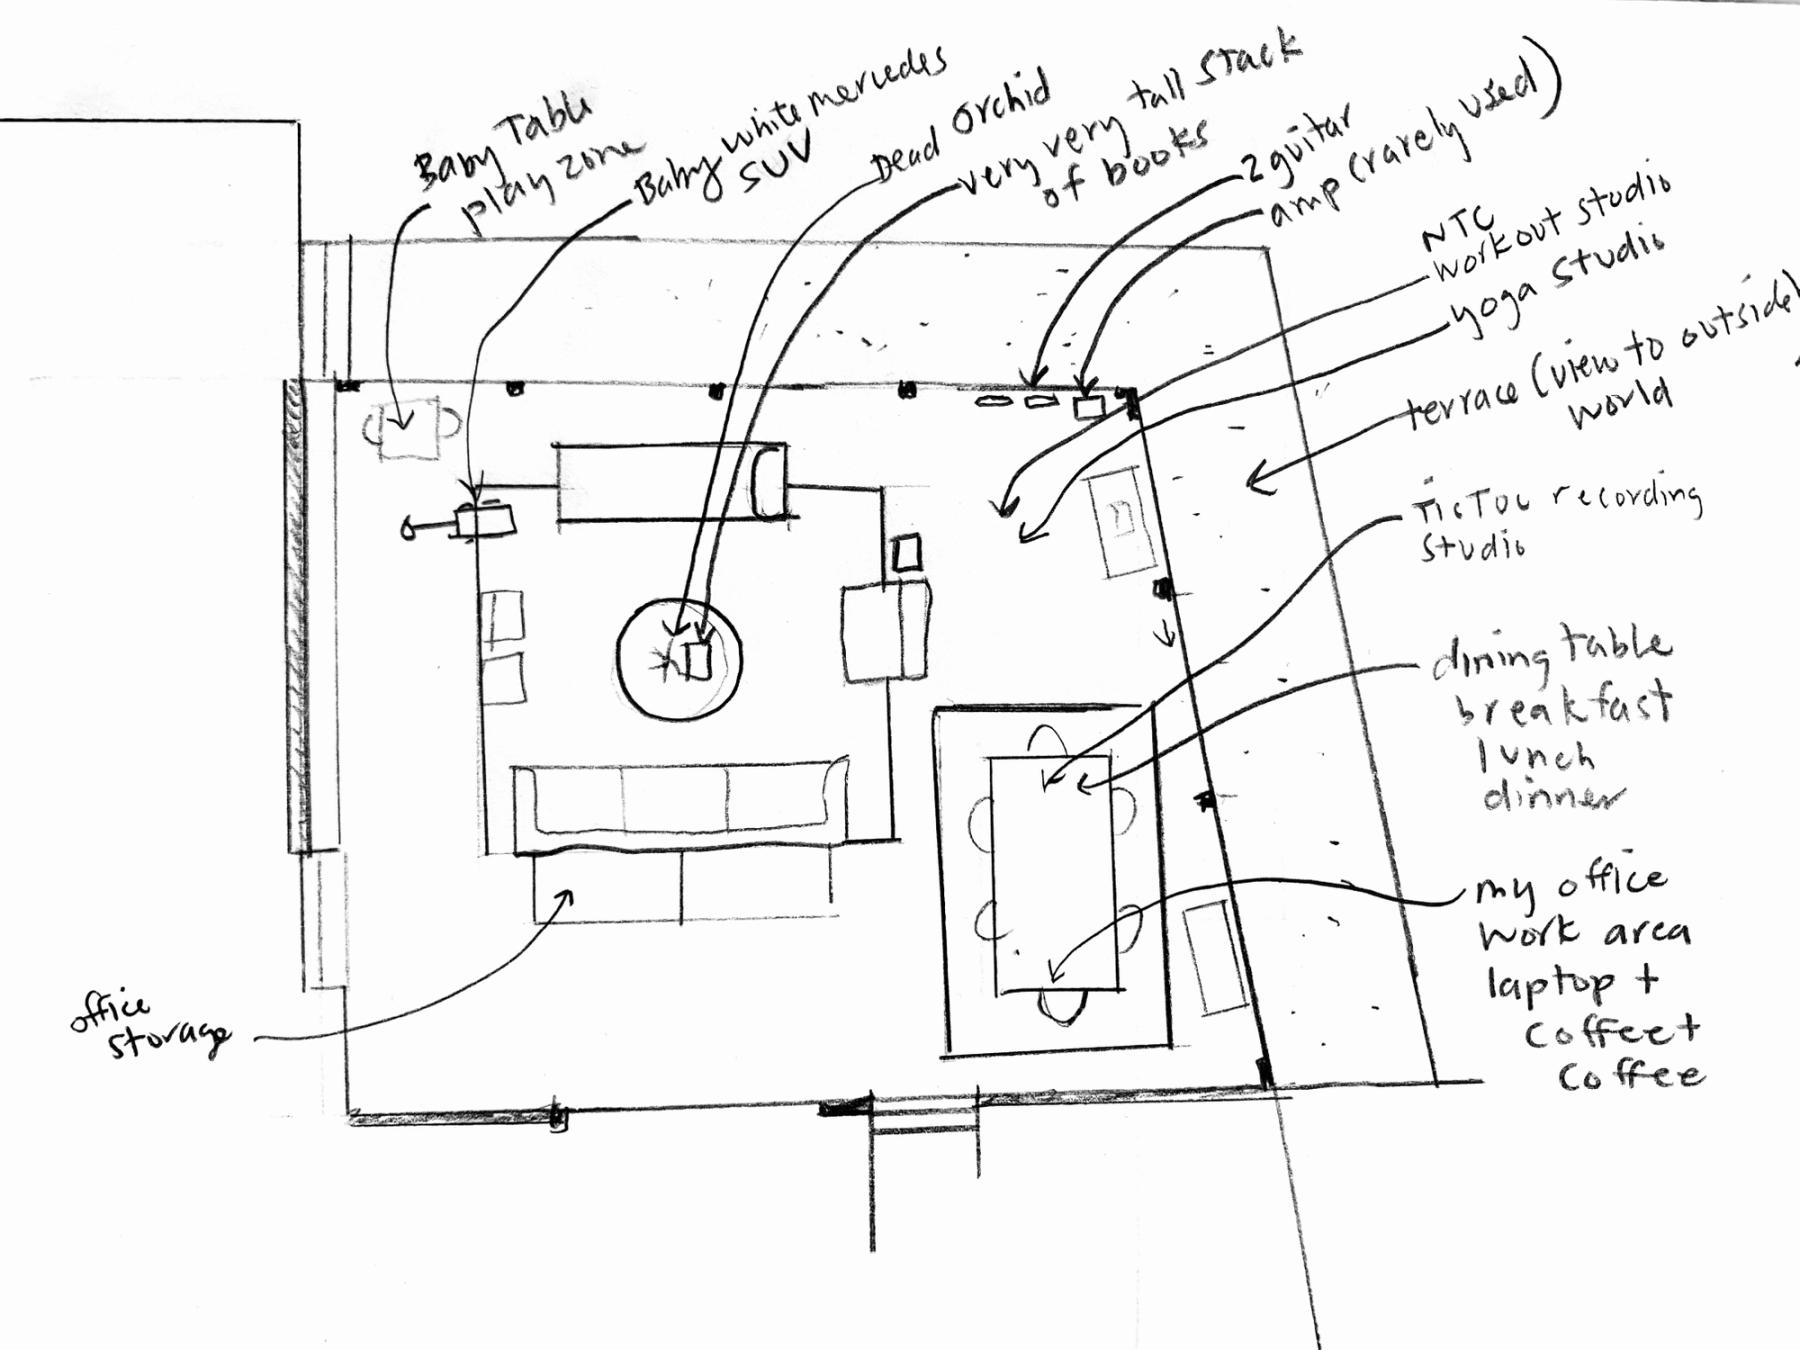 Baby Table
play zone
Baby white mercedes
SUV
Dead Orchid
very very tall stack
of books
2 guitar
amp (rarely used)
NTC
workout studio
yoga studio
terrace (view to outside)
world
TicToc recording
studio
dining table
breakfast
lunch
dinner
my office
work area
laptop +
coffee +
coffee
office
storage